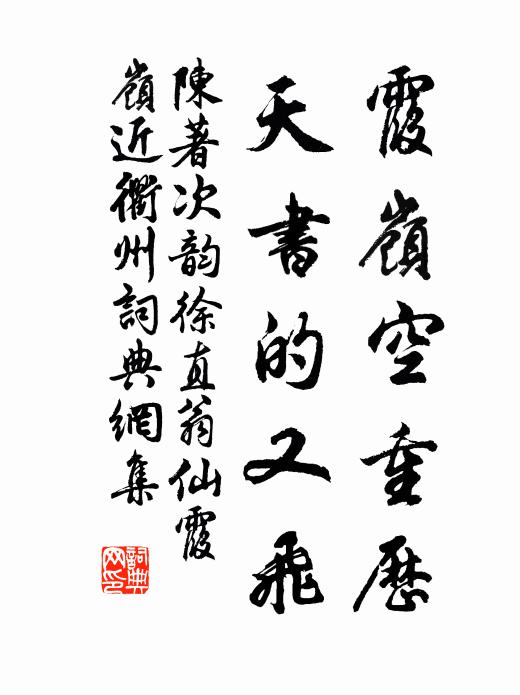 霞嶺空重歷
天書的又飛
陳著次韵徐直翁仙霞
嶺近衢州詞典網集
詞典
网印